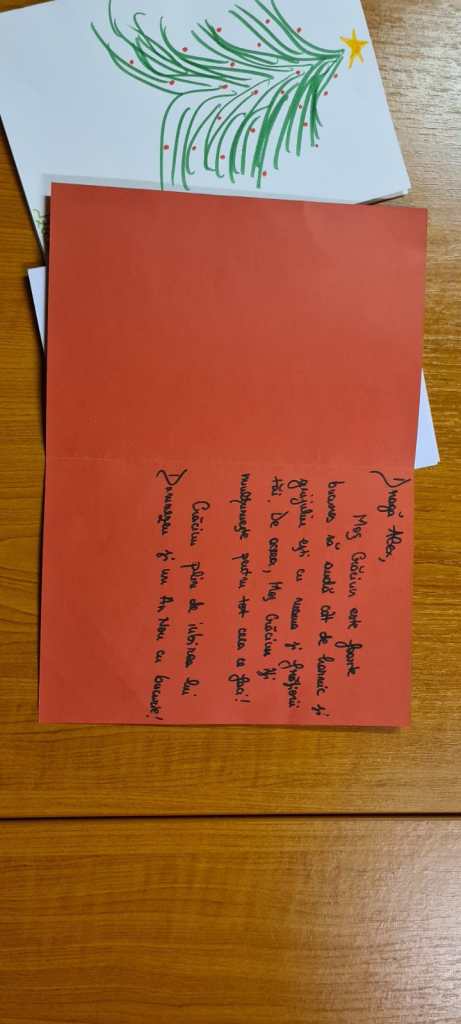 Dragă Alex,
Moș Crăciun este foarte
bucuros să audă cât de harnic și
grijuliu ești cu mama și frățiorii
tăi. De aceea, Moș Crăciun îți
mulțumește pentru tot ceea ce faci!
Crăciun plin de iubirea lui
Dumnezeu și un An Nou cu bucurie!